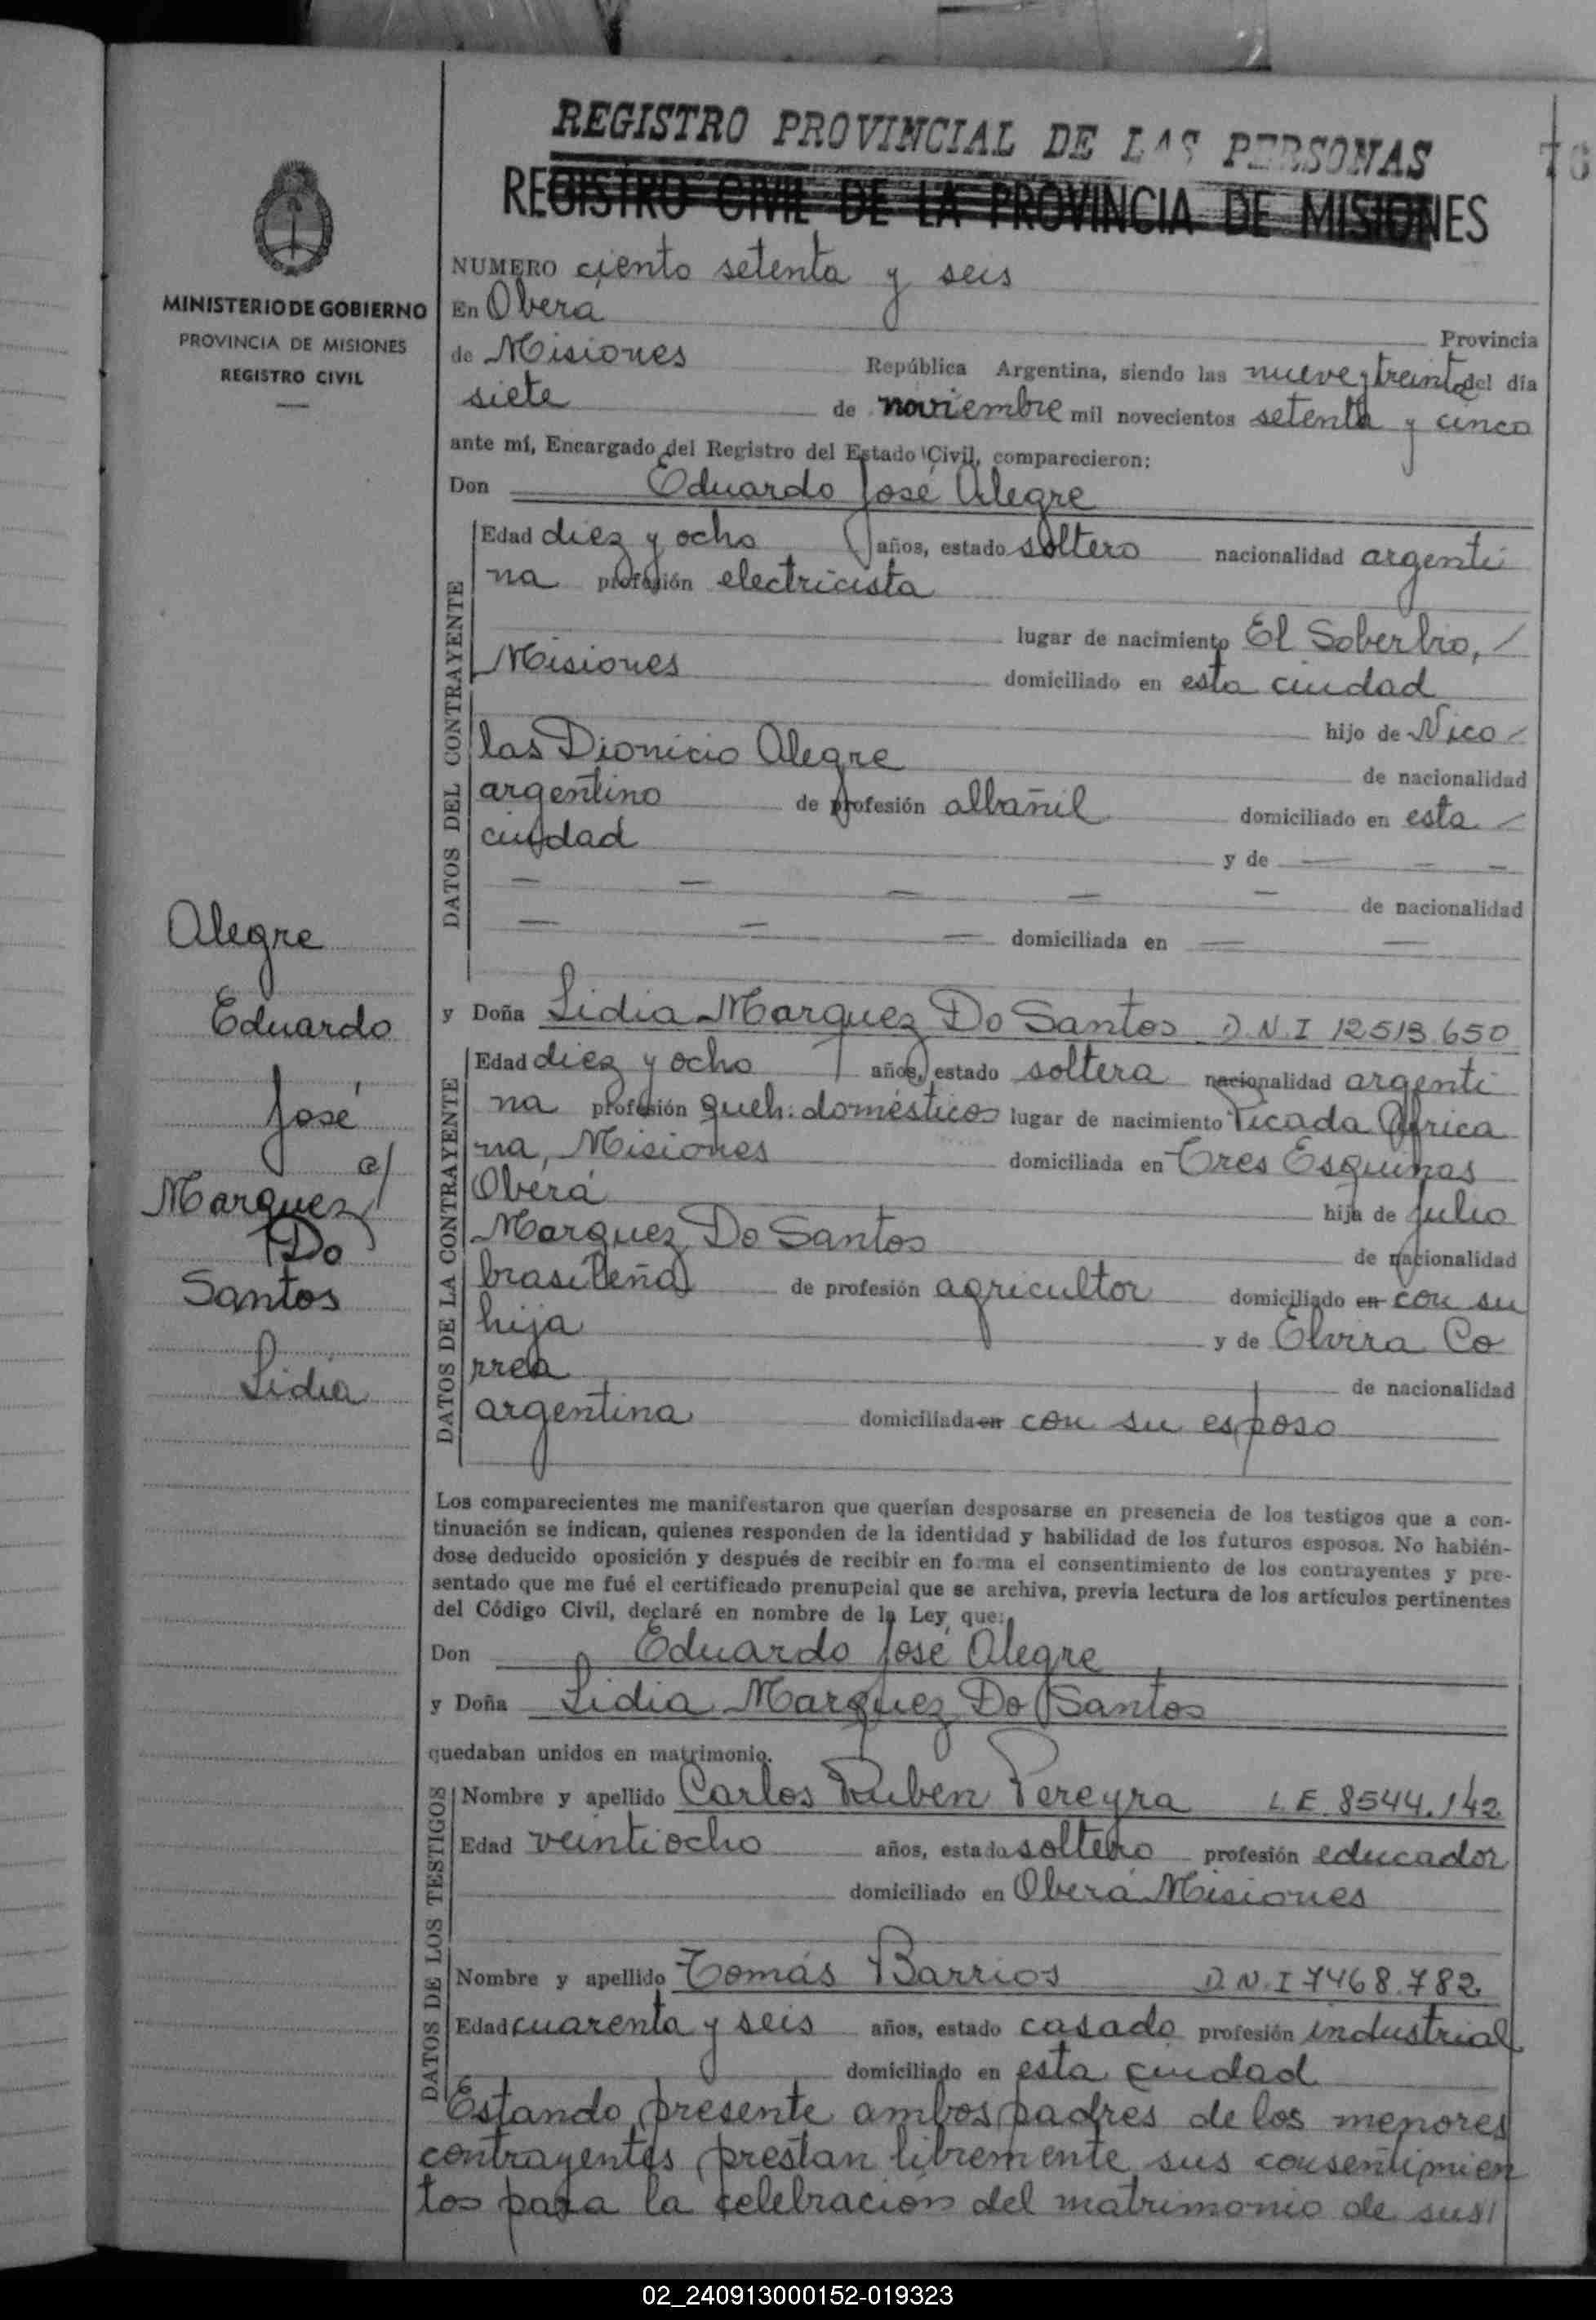 REGISTRO PROVINCIAL DE LAS PERSONAS
REGISTRO CIVIL DE LA PROVINCIA DE MISIONES
MINISTERIO DE GOBIERNO
PROVINCIA DE MISIONES
REGISTRO CIVIL
NUMERO ciento setenta y seis
En Obera
Provincia
de Misiones República Argentina, siendo las nueve y treinta del día
siete de noviembre mil novecientos setenta y cinco
ante mí, Encargado del Registro del Estado Civil, comparecieron:
Don Eduardo José Alegre
DATOS DEL CONTRAYENTE
Edad diez y ocho años, estado soltero nacionalidad argenti
na profesión electricista
lugar de nacimiento El Soberbio, /
Misiones domiciliado en esta ciudad
hijo de Nico /
las Dionicio Alegre de nacionalidad
argentino de profesión albañil domiciliado en esta /
ciudad y de — — —
— — — — — de nacionalidad
— — — domiciliada en — —
Alegre
Eduardo
José
c/
Marquez
Do
Santos
Lidia
y Doña Lidia Marquez Do Santos D.N.I 12513.650
DATOS DE LA CONTRAYENTE
Edad diez y ocho años, estado soltera nacionalidad argenti
na profesión queh. domésticos lugar de nacimiento Picada Africa
na, Misiones domiciliada en Tres Esquinas
Oberá hija de Julio
Marquez Do Santos de nacionalidad
brasileña de profesión agricultor domiciliado en con su
hija y de Elvira Co
rrea de nacionalidad
argentina domiciliada en con su esposo
Los comparecientes me manifestaron que querían desposarse en presencia de los testigos que a con-
tinuación se indican, quienes responden de la identidad y habilidad de los futuros esposos. No habién-
dose deducido oposición y después de recibir en forma el consentimiento de los contrayentes y pre-
sentado que me fué el certificado prenupcial que se archiva, previa lectura de los artículos pertinentes
del Código Civil, declaré en nombre de la Ley, que:
Don Eduardo José Alegre
y Doña Lidia Marquez Do Santos
quedaban unidos en matrimonio.
DATOS DE LOS TESTIGOS
Nombre y apellido Carlos Ruben Pereyra L.E. 8544.142
Edad veintiocho años, estado soltero profesión educador
domiciliado en Oberá Misiones
Nombre y apellido Tomás Barrios D.N.I 7468.782
Edad cuarenta y seis años, estado casado profesión industrial
domiciliado en esta ciudad
Estando presente ambos padres de los menores
contrayentes prestan libremente sus consentimien
tos para la celebración del matrimonio de sus/
02_240913000152-019323